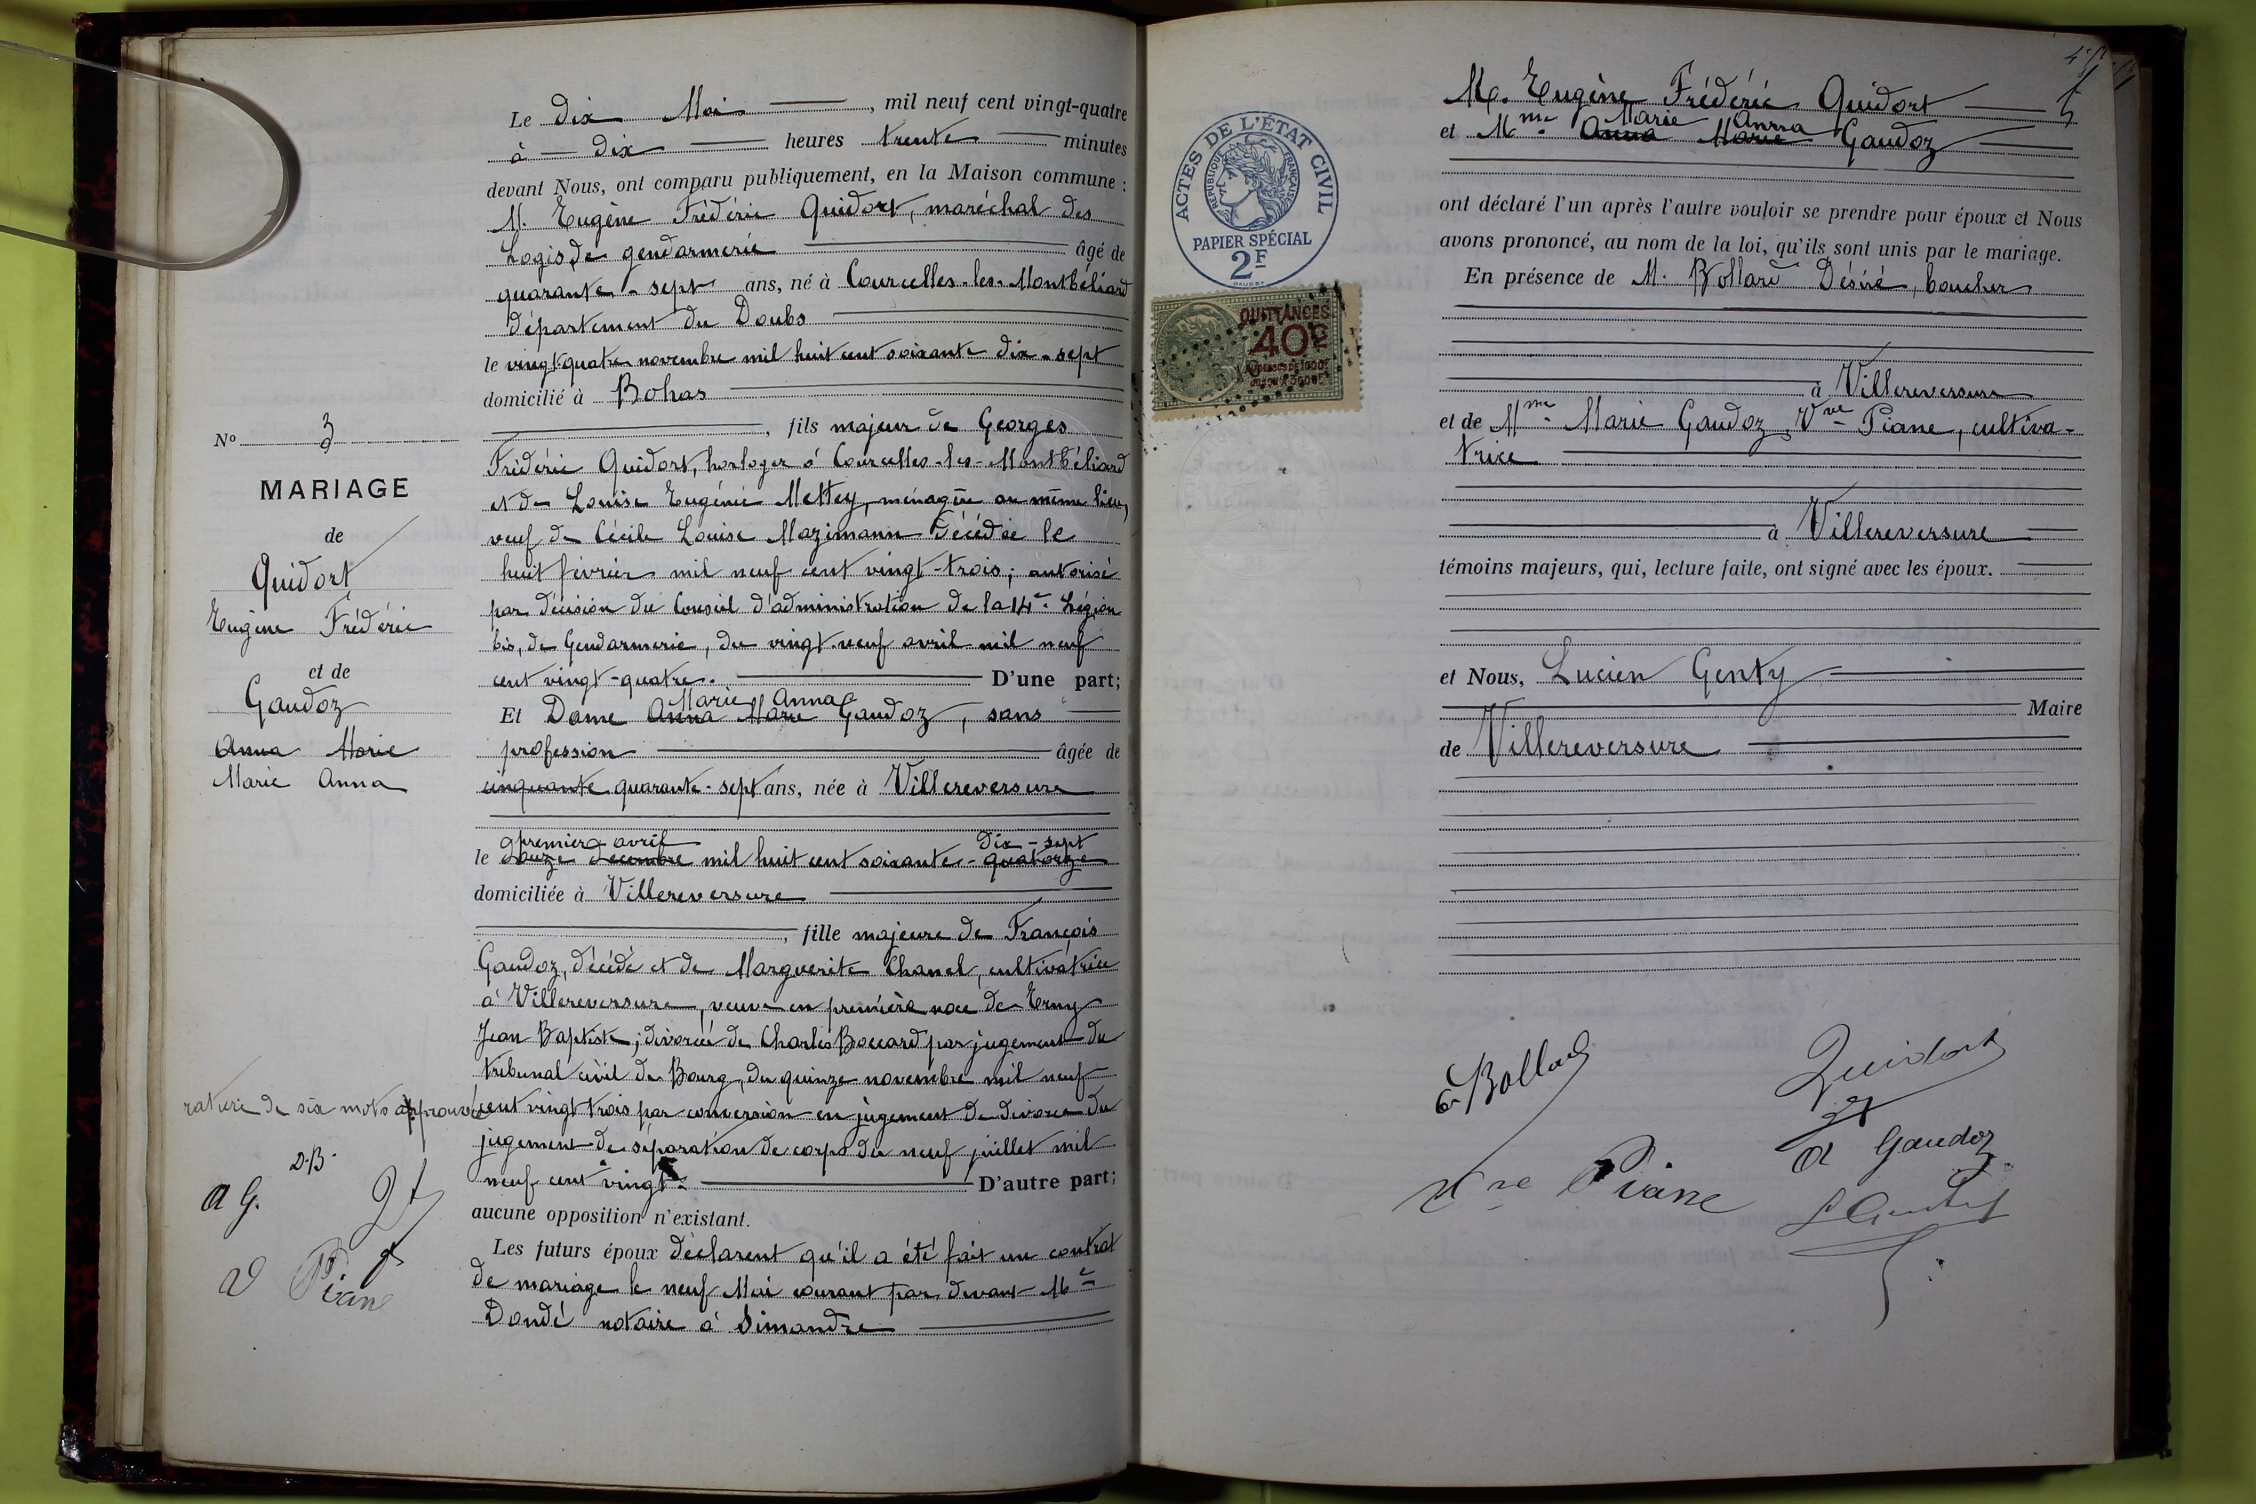 Le dix Mai, mil neuf cent vingt-quatre
à dix heures trente minutes
devant Nous, ont comparu publiquement, en la Maison commune :
M. Eugène Frédéric Quidort, maréchal des
Logis de gendarmerie âgé de
quarante-sept ans, né à Courcelles-les-Montbéliard
département du Doubs
le vingt-quatre novembre mil huit cent soixante dix-sept
domicilié à Bohas
, fils majeur de Georges
Frédéric Quidort, horloger à Courcelles-les-Montbéliard
et de Louise Eugénie Mettey, ménagère au même lieu,
veuf de Cécile Louise Mazimann décédée le
huit février mil neuf cent vingt-trois; autorisé
par décision du Conseil d'administration de la 14e Légion
bis, de Gendarmerie, du vingt-neuf avril mil neuf
cent vingt-quatre. D'une part;
Marie Anna
Et Dame Anna Marie Gaudoz, sans
profession âgée de
cinquante quarante-sept ans, née à Villereversure
premier avril dix-sept
le douze décembre mil huit cent soixante-quatorze
domiciliée à Villereversure
, fille majeure de François
Gaudoz, décédé et de Marguerite Chanel, cultivatrice
à Villereversure, veuve en première noce de Erny
Jean Baptiste; divorcée de Charles Boccard par jugement du
tribunal civil de Bourg, du quinze novembre mil neuf
cent vingt trois par conversion en jugement de divorce du
jugement de séparation de corps du neuf juillet mil
neuf cent vingt. D'autre part;
aucune opposition n'existant.
Les futurs époux déclarent qu'il a été fait un contrat
de mariage le neuf Mai courant par devant Me
Dondé notaire à Simandre
No 3
MARIAGE
de
Quidort
Eugène Frédéric
et de
Gaudoz
Anna Marie
Marie Anna
rature de six mots approuvée
D.B.
A G.
V Pivane
ACTES DE L'ÉTAT CIVIL
RÉPUBLIQUE FRANÇAISE
PAPIER SPÉCIAL
2F
QUITTANCES
40c
M. Eugène Frédéric Quidort
Marie Anna
et Mme Anna Marie Gaudoz
ont déclaré l'un après l'autre vouloir se prendre pour époux et Nous
avons prononcé, au nom de la loi, qu'ils sont unis par le mariage.
En présence de M. Bollard Désiré, boucher
à Villereversure
et de Mme Marie Gaudoz, Vve Piane, cultiva-
trice
à Villereversure
témoins majeurs, qui, lecture faite, ont signé avec les époux.
et Nous, Lucien Genty
Maire
de Villereversure
Bollard
Quidort
A Gaudoz
Vve Pivane